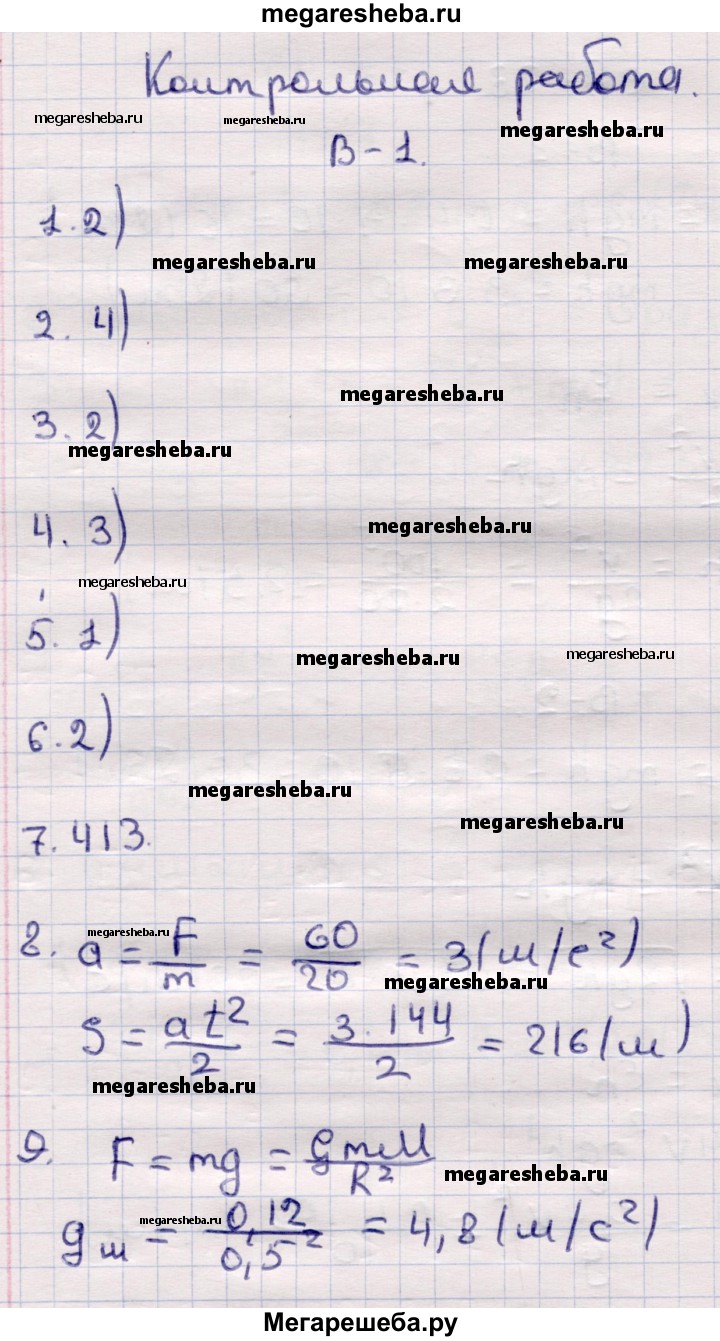 megaresheba.ru
Контрольная работа.
megaresheba.ru
megaresheba.ru
megaresheba.ru
В-1.
1. 2)
megaresheba.ru
megaresheba.ru
2. 4)
megaresheba.ru
3. 2)
megaresheba.ru
4. 3)
megaresheba.ru
megaresheba.ru
5. 1)
megaresheba.ru
megaresheba.ru
6. 2)
megaresheba.ru
7. 413.
megaresheba.ru
megaresheba.ru
8. a = F/m = 60/20 = 3(м/с²)
megaresheba.ru
S = at²/2 = 3·144/2 = 216(м)
megaresheba.ru
9. F = mg = GmM/R²
megaresheba.ru
megaresheba.ru
gм = 0,12/0,5² = 4,8(м/с²)
Мегарешеба.ру